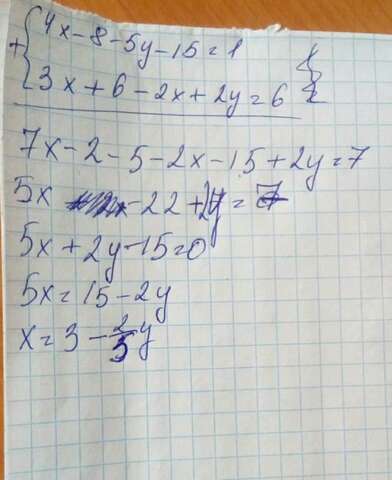 +{4x-8-5y-15=1
3x+6-2x+2y=6
7x-2-5-2x-15+2y=7
5x -22+2y=7
5x+2y-15=0
5x=15-2y
x=3-2/5y